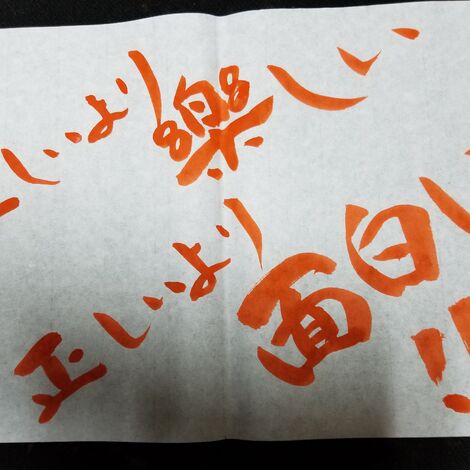 しいより樂しい
正しいより面白い!!